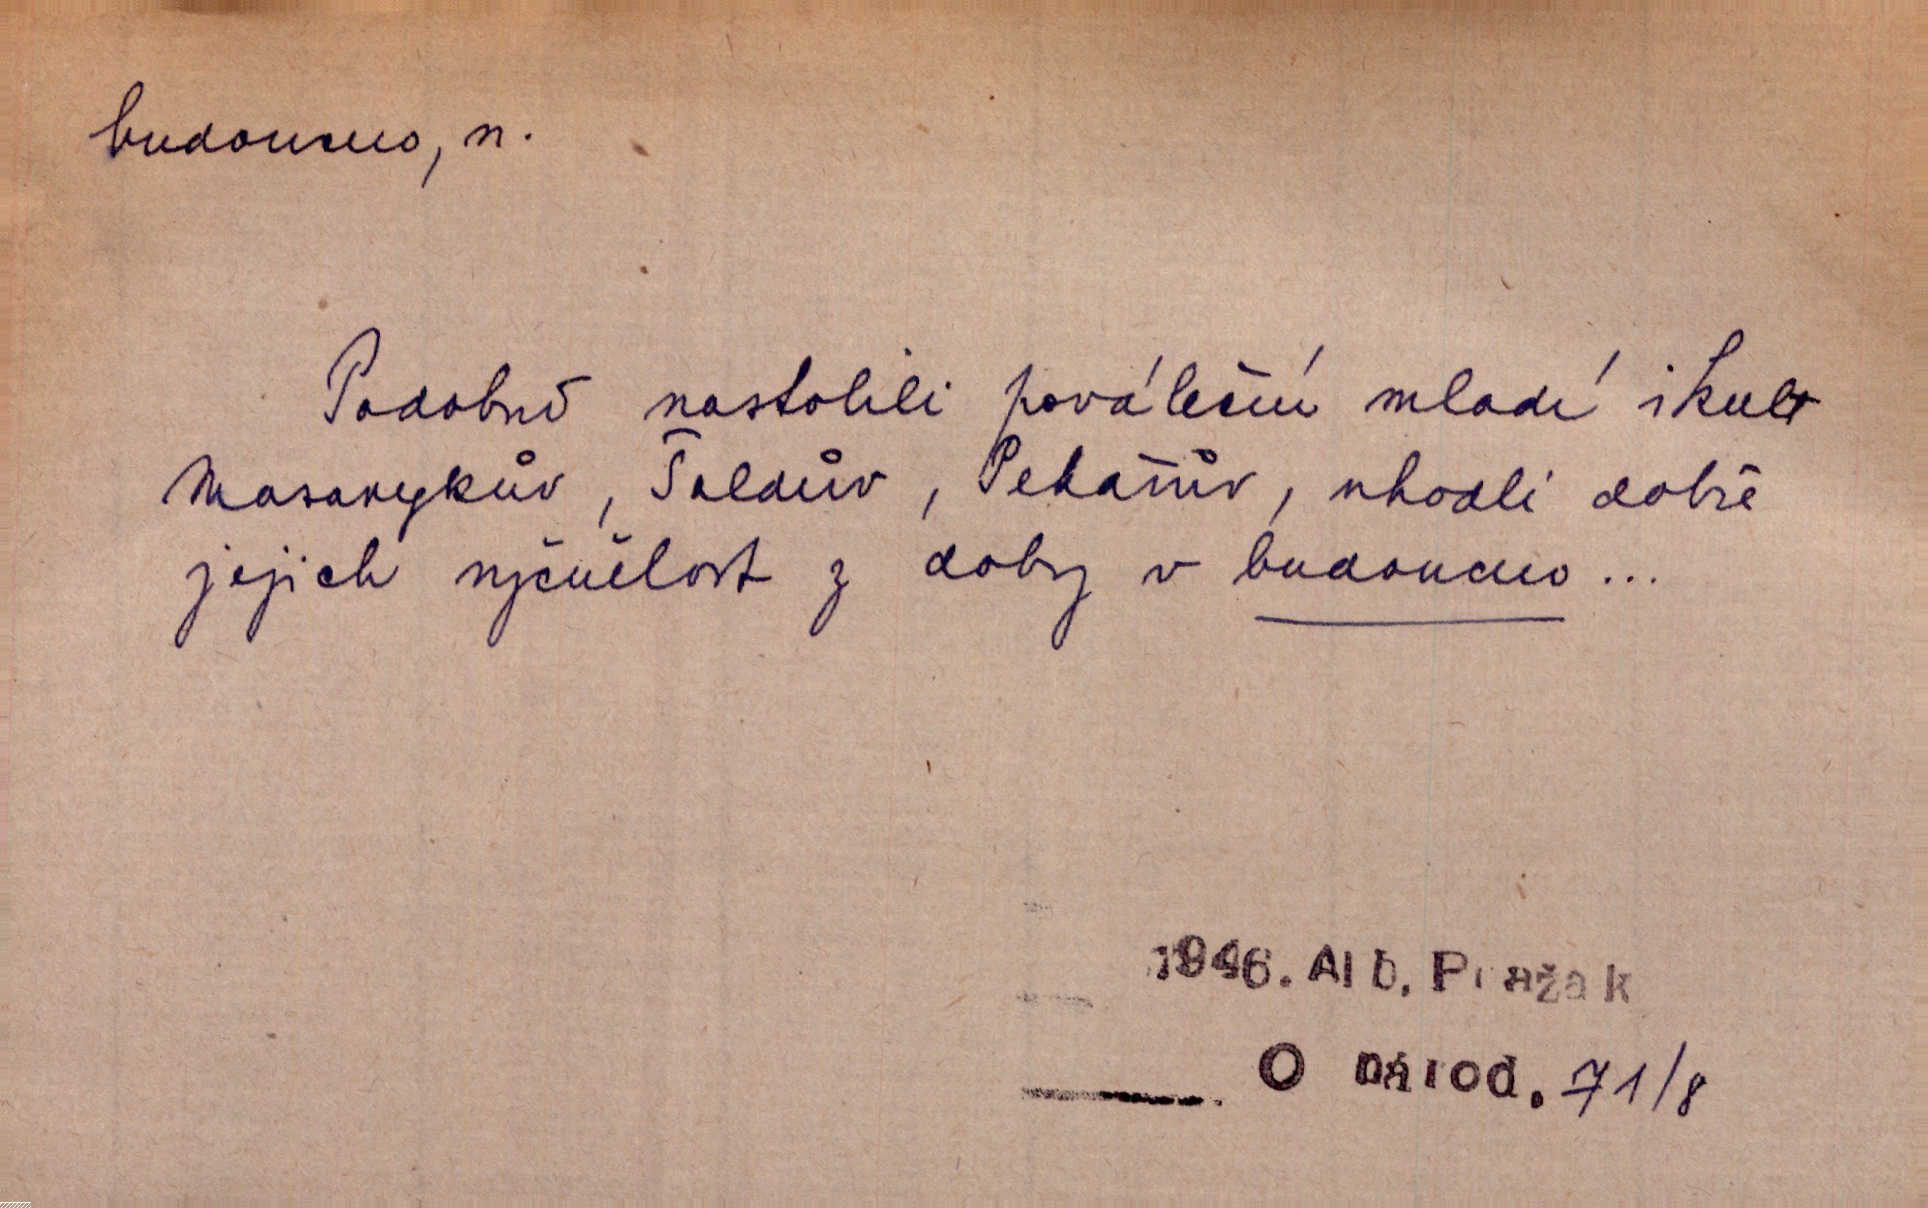 budoucno, n.
Podobně nastolili pováleční mladí i kult
Masarykův, Šaldův, Pekařův, uhodli dobře
jejich výčnělost z doby v budoucno...
1946. Alb. Pražak
O národ. 71/8